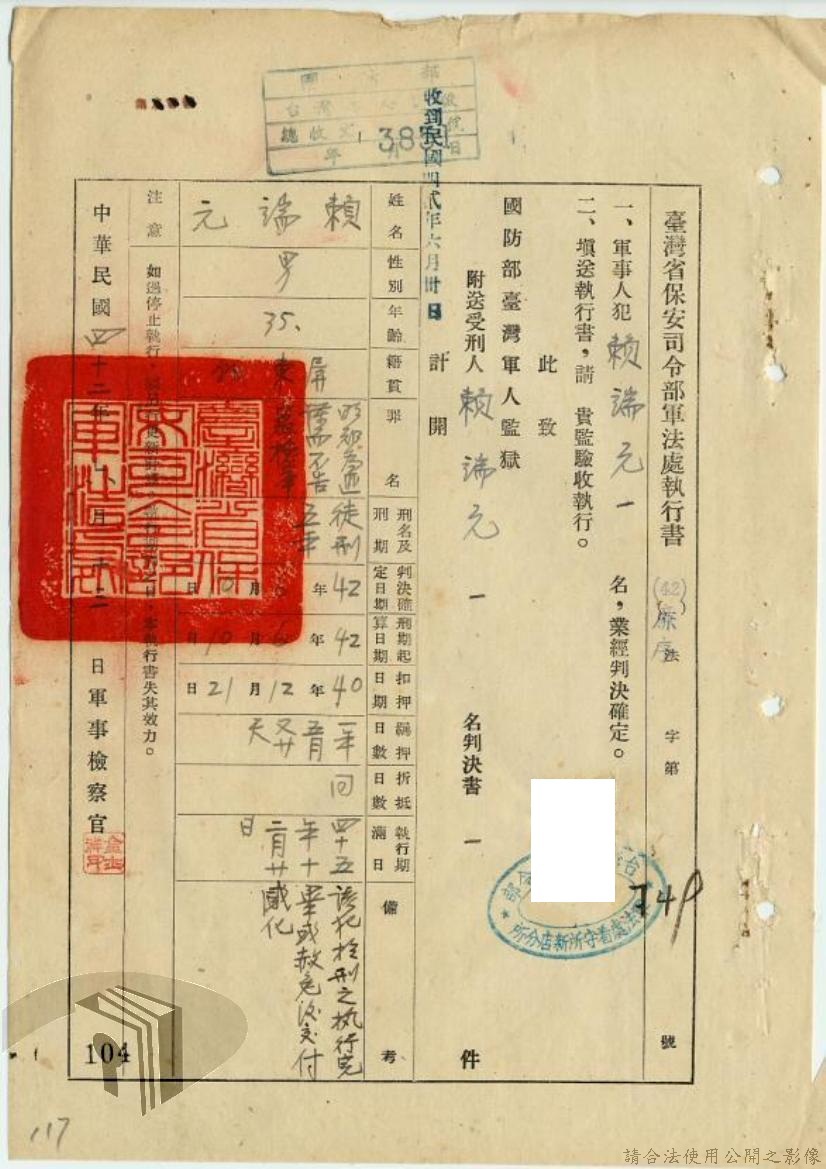 臺灣省保安司令部軍法處執行書 (42) 法 字第 749 號
一、軍事人犯 賴端元 一 名，業經判決確定。
二、填送執行書，請 貴監驗收執行。
此致
國防部臺灣軍人監獄
附送受刑人 賴端元 一 名判決書 一 件
計開
收到民國四貳年六月卅日
姓名 賴端元
性別 男
年齡 35、
籍貫 屏東
罪名 明知為匪諜而不告密檢舉
刑名及刑期 徒刑五年
判決確定日期 42年6月10日
刑期起算日期 42年6月10日
扣押日期 40年12月21日
羈押日數 一年五月又廿天
折抵日數 同
執行期滿日 四十五年十二月廿日
備考 該犯於刑之執行完畢或赦免後交付感化
注意 如過停止執行
本執行書失其效力。
中華民國四十二年 月十二日軍事檢察官
臺灣省保安司令部軍法處
總收文
38
年 月 日
法處看守所新店分所
104
117
請合法使用公開之影像